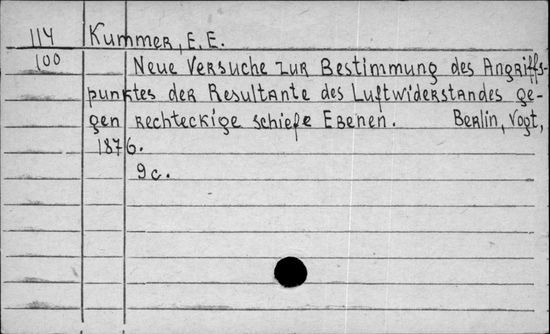 114 Kummer, E. E.
100 Neue Versuche zur Bestimmung des Angriffs-
punktes der Resultante des Luftwiderstandes ge-
gen rechteckige schiefe Ebenen. Berlin, Vogt,
1876.
9c.